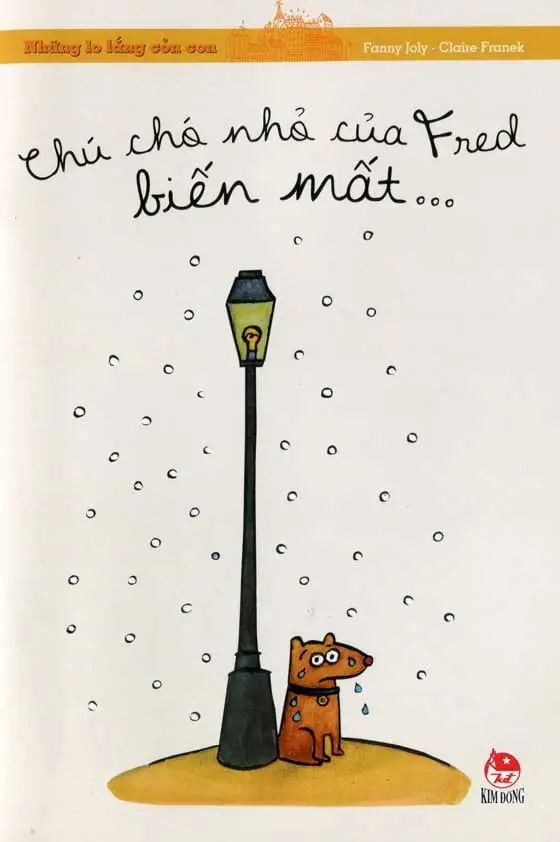 Những lo lắng cỏn con
Fanny Joly - Claire Franek
Chú chó nhỏ của Fred
biến mất...
KIM ĐỒNG